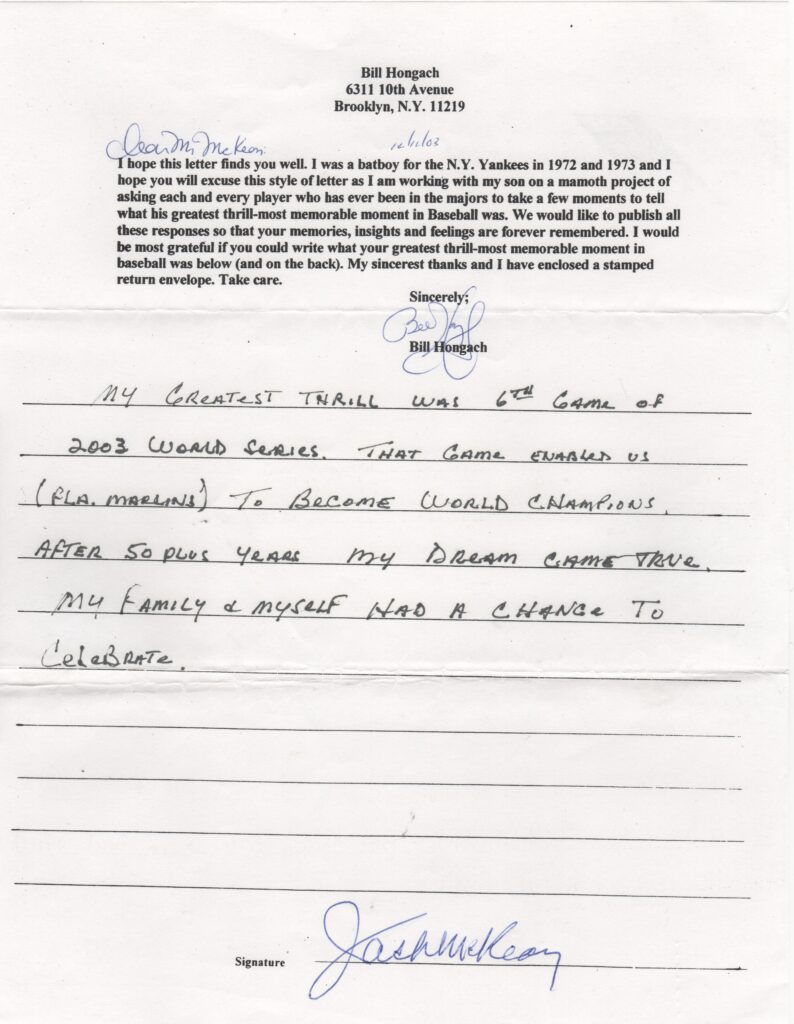 Bill Hongach
6311 10th Avenue
Brooklyn, N.Y. 11219
Dear Mr McKeon
I hope this letter finds you well. I was a batboy for the N.Y. Yankees in 1972 and 1973 and I
hope you will excuse this style of letter as I am working with my son on a mamoth project of
asking each and every player who has ever been in the majors to take a few moments to tell
what his greatest thrill-most memorable moment in Baseball was. We would like to publish all
these responses so that your memories, insights and feelings are forever remembered. I would
be most grateful if you could write what your greatest thrill-most memorable moment in
baseball was below (and on the back). My sincerest thanks and I have enclosed a stamped
return envelope. Take care.
Sincerely;
Bill Hongach
MY GREATEST THRILL WAS 6TH GAME OF
2003 WORLD SERIES. THAT GAME ENABLED US
(FLA. MARLINS) TO BECOME WORLD CHAMPIONS.
AFTER 50 PLUS YEARS MY DREAM CAME TRUE.
MY FAMILY & MYSELF HAD A CHANCE TO
CELEBRATE.
Signature Jack McKeon